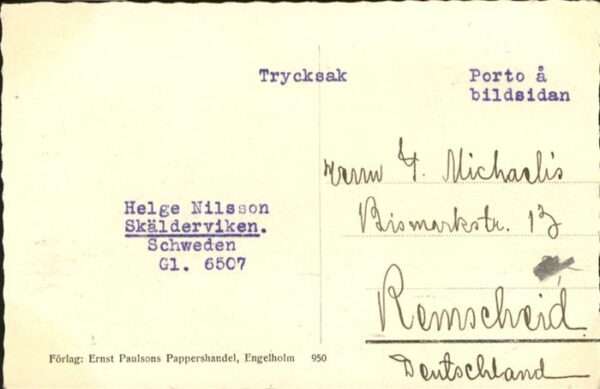 Trycksak
Porto å
bildsidan
Helge Nilsson
Skälderviken.
Schweden
Gl. 6507
Herrn F. Michaelis
Bismarkstr. 13
Remscheid
Deutschland
Förlag: Ernst Paulsons Pappershandel, Engelholm 950